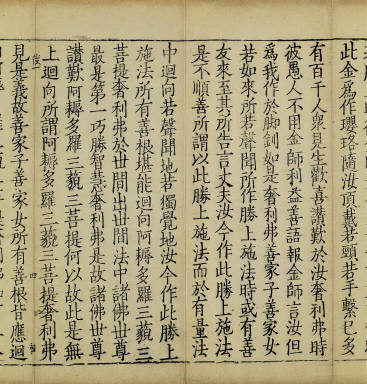 此金為作瓔珞隨汝頂戴若頸若手繫已多
有百千人眾見生歡喜讚歎於汝奢利弗時
彼愚人不用金師利益善語報金師言汝但
為我作於脚釧如是奢利弗善家子善家女
若如來所若聲聞所作勝上施法時或有善
友來至其所告言丈夫汝今作此勝上施法
是不順善所謂以此勝上施法而於有量法
中迴向若聲聞地若獨覺地汝今作此勝上
施法所有善根堪能迴向阿耨多羅三藐三
菩提奢利弗於世間出世間法中諸佛世尊
最是第一巧勝智慧奢利弗是故諸佛世尊
讚歎阿耨多羅三藐三菩提何以故此是無
上迴向所謂阿耨多羅三藐三菩提奢利弗
見是義故善家子善家女所有善根皆應迴